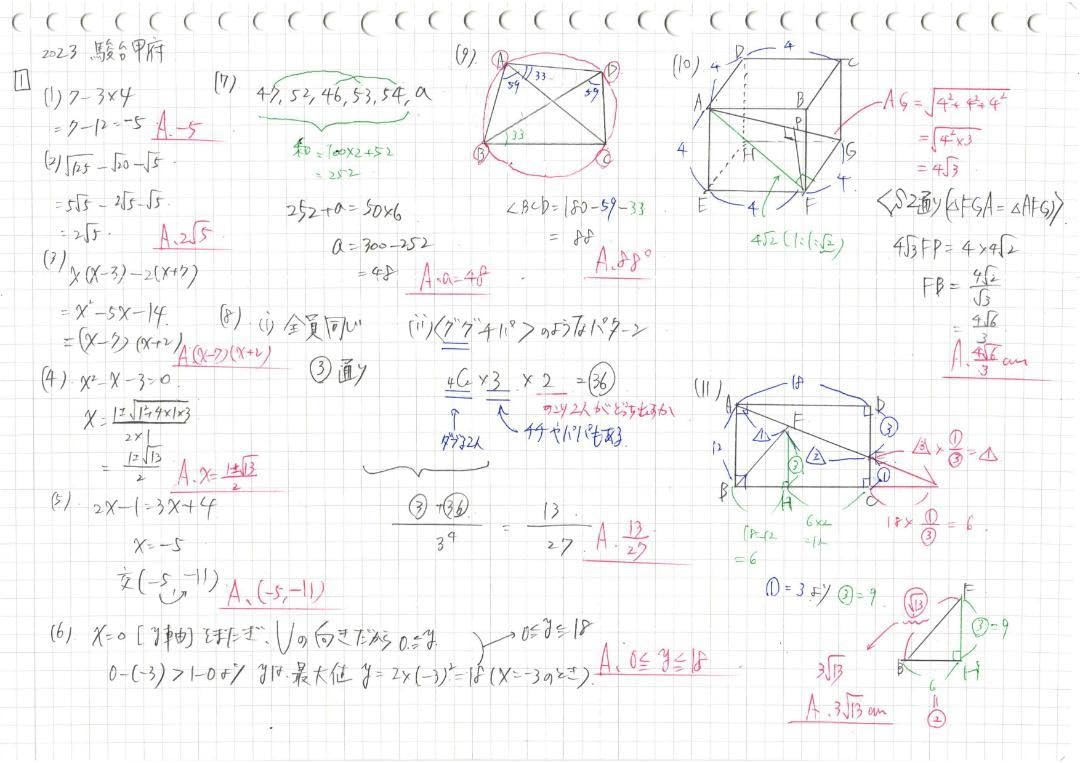 2023 駿台甲府
1
(1) 7-3×4
=7-12=-5 A.-5
(2) √125-√20-√5
=5√5-2√5-√5
=2√5 A.2√5
(3) x(x-3)-2(x+7)
=x²-5x-14
=(x-7)(x+2) A(x-7)(x+2)
(4) x²-x-3=0
x=1±√1+4×1×3/2×1
=1±√13/2 A.x=1±√13/2
(5) 2x-1=3x+4
x=-5
交(-5,-11) A.(-5,-11)
(6) x=0[y軸]をまたぎ、Uの向きだから0≦y
0-(-3)>1-0より yは、最大値 y=2×(-3)²=18(x=-3のとき)
0≦y≦18
A.0≦y≦18
(7) 47,52,46,53,54,a
和=100×2+52
=252
252+a=50×6
a=300-252
=48 A.a=48
(8) (i) 全員同じ
③通り
(ii)〈ググチパ〉のようなパターン
₄C₂×3×2=㊱
のこり2人がどっち出るか
グ出る2人
チチやパパもある
③+㊱/3⁴=13/27 A.13/27
(9)
A
D
59
33
59
33
B
C
∠BCD=180-59-33
=88
A.88°
(10)
D
4
C
4
A
B
P
4
H
G
E
4
F
4
4√2(1:1:√2)
AG=√4²+4²+4²
=√4²×3
=4√3
〈S2通り(△FGA=△AFG)〉
4√3FP=4×4√2
FB=4√2/√3
=4√6/3
A.4√6/3cm
(11)
18
A
D
F
③
12
②
③
①
B
H
C
×①/③=
18×①/③=6
18-12
=6
6×2
=12
①=3より③=9
F
√13
③=9
B
6
②
3√13
A.3√13cm